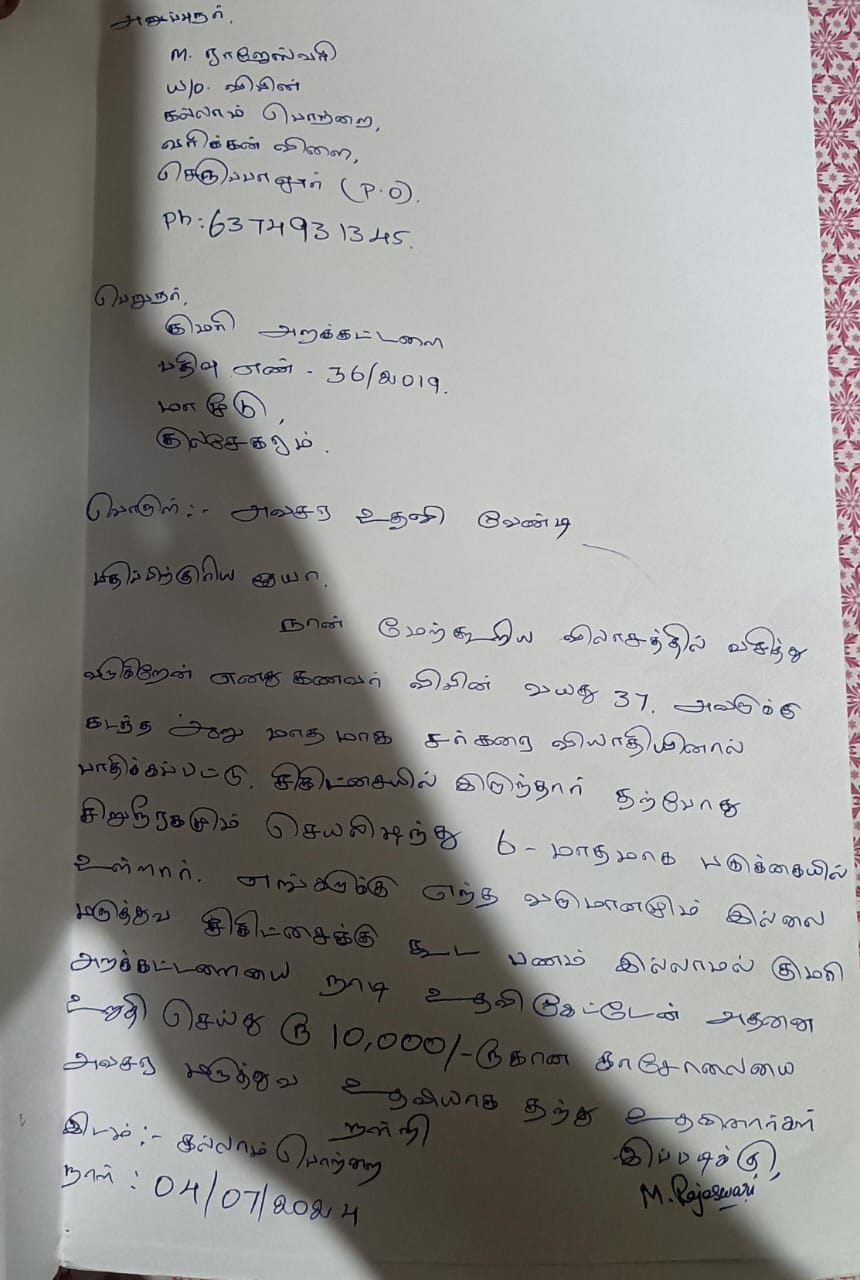 அனுப்புநர்,
M. ராஜேஸ்வரி
W/O. விபின்
கல்லாம் பொற்றை,
வரிக்கன் விளை,
செருப்பாலூர் (P.O).
Ph: 6374931345.
பெறுநர்,
குமரி அறக்கட்டளை
பதிவு எண் - 36/2019.
மாஞ்சூடு,
குலசேகரம்.
பொருள் :- அவசர உதவி வேண்டி
மதிப்பிற்குரிய ஐயா,
நான் மேற்கூறிய விலாசத்தில் வசித்து
வருகிறேன் எனது கணவர் விபின் வயது 37. அவருக்கு
கடந்த ஆறு மாதமாக சர்கரை வியாதியினால்
பாதிக்கப்பட்டு. சிகிட்சையில் இருந்தார் தற்போது
சிறுநீரகமும் செயலிழந்து 6 - மாதமாக படுக்கையில்
உள்ளார். எங்களுக்கு எந்த வருமானமும் இல்லை
மருத்துவ சிகிட்சைக்கு கூட பணம் இல்லாமல் குமரி
அறக்கட்டளையை நாடி உதவி கேட்டேன் அதனை
உறுதி செய்து ரூ 10,000/- ருகான காசோலையை
அவசர மருத்துவ உதவியாக தந்து உதவினார்கள்
நன்றி
இடம் :- கல்லாம் பொற்றை
நாள் : 04/07/2024
இப்படிக்கு,
M. Rajeswari